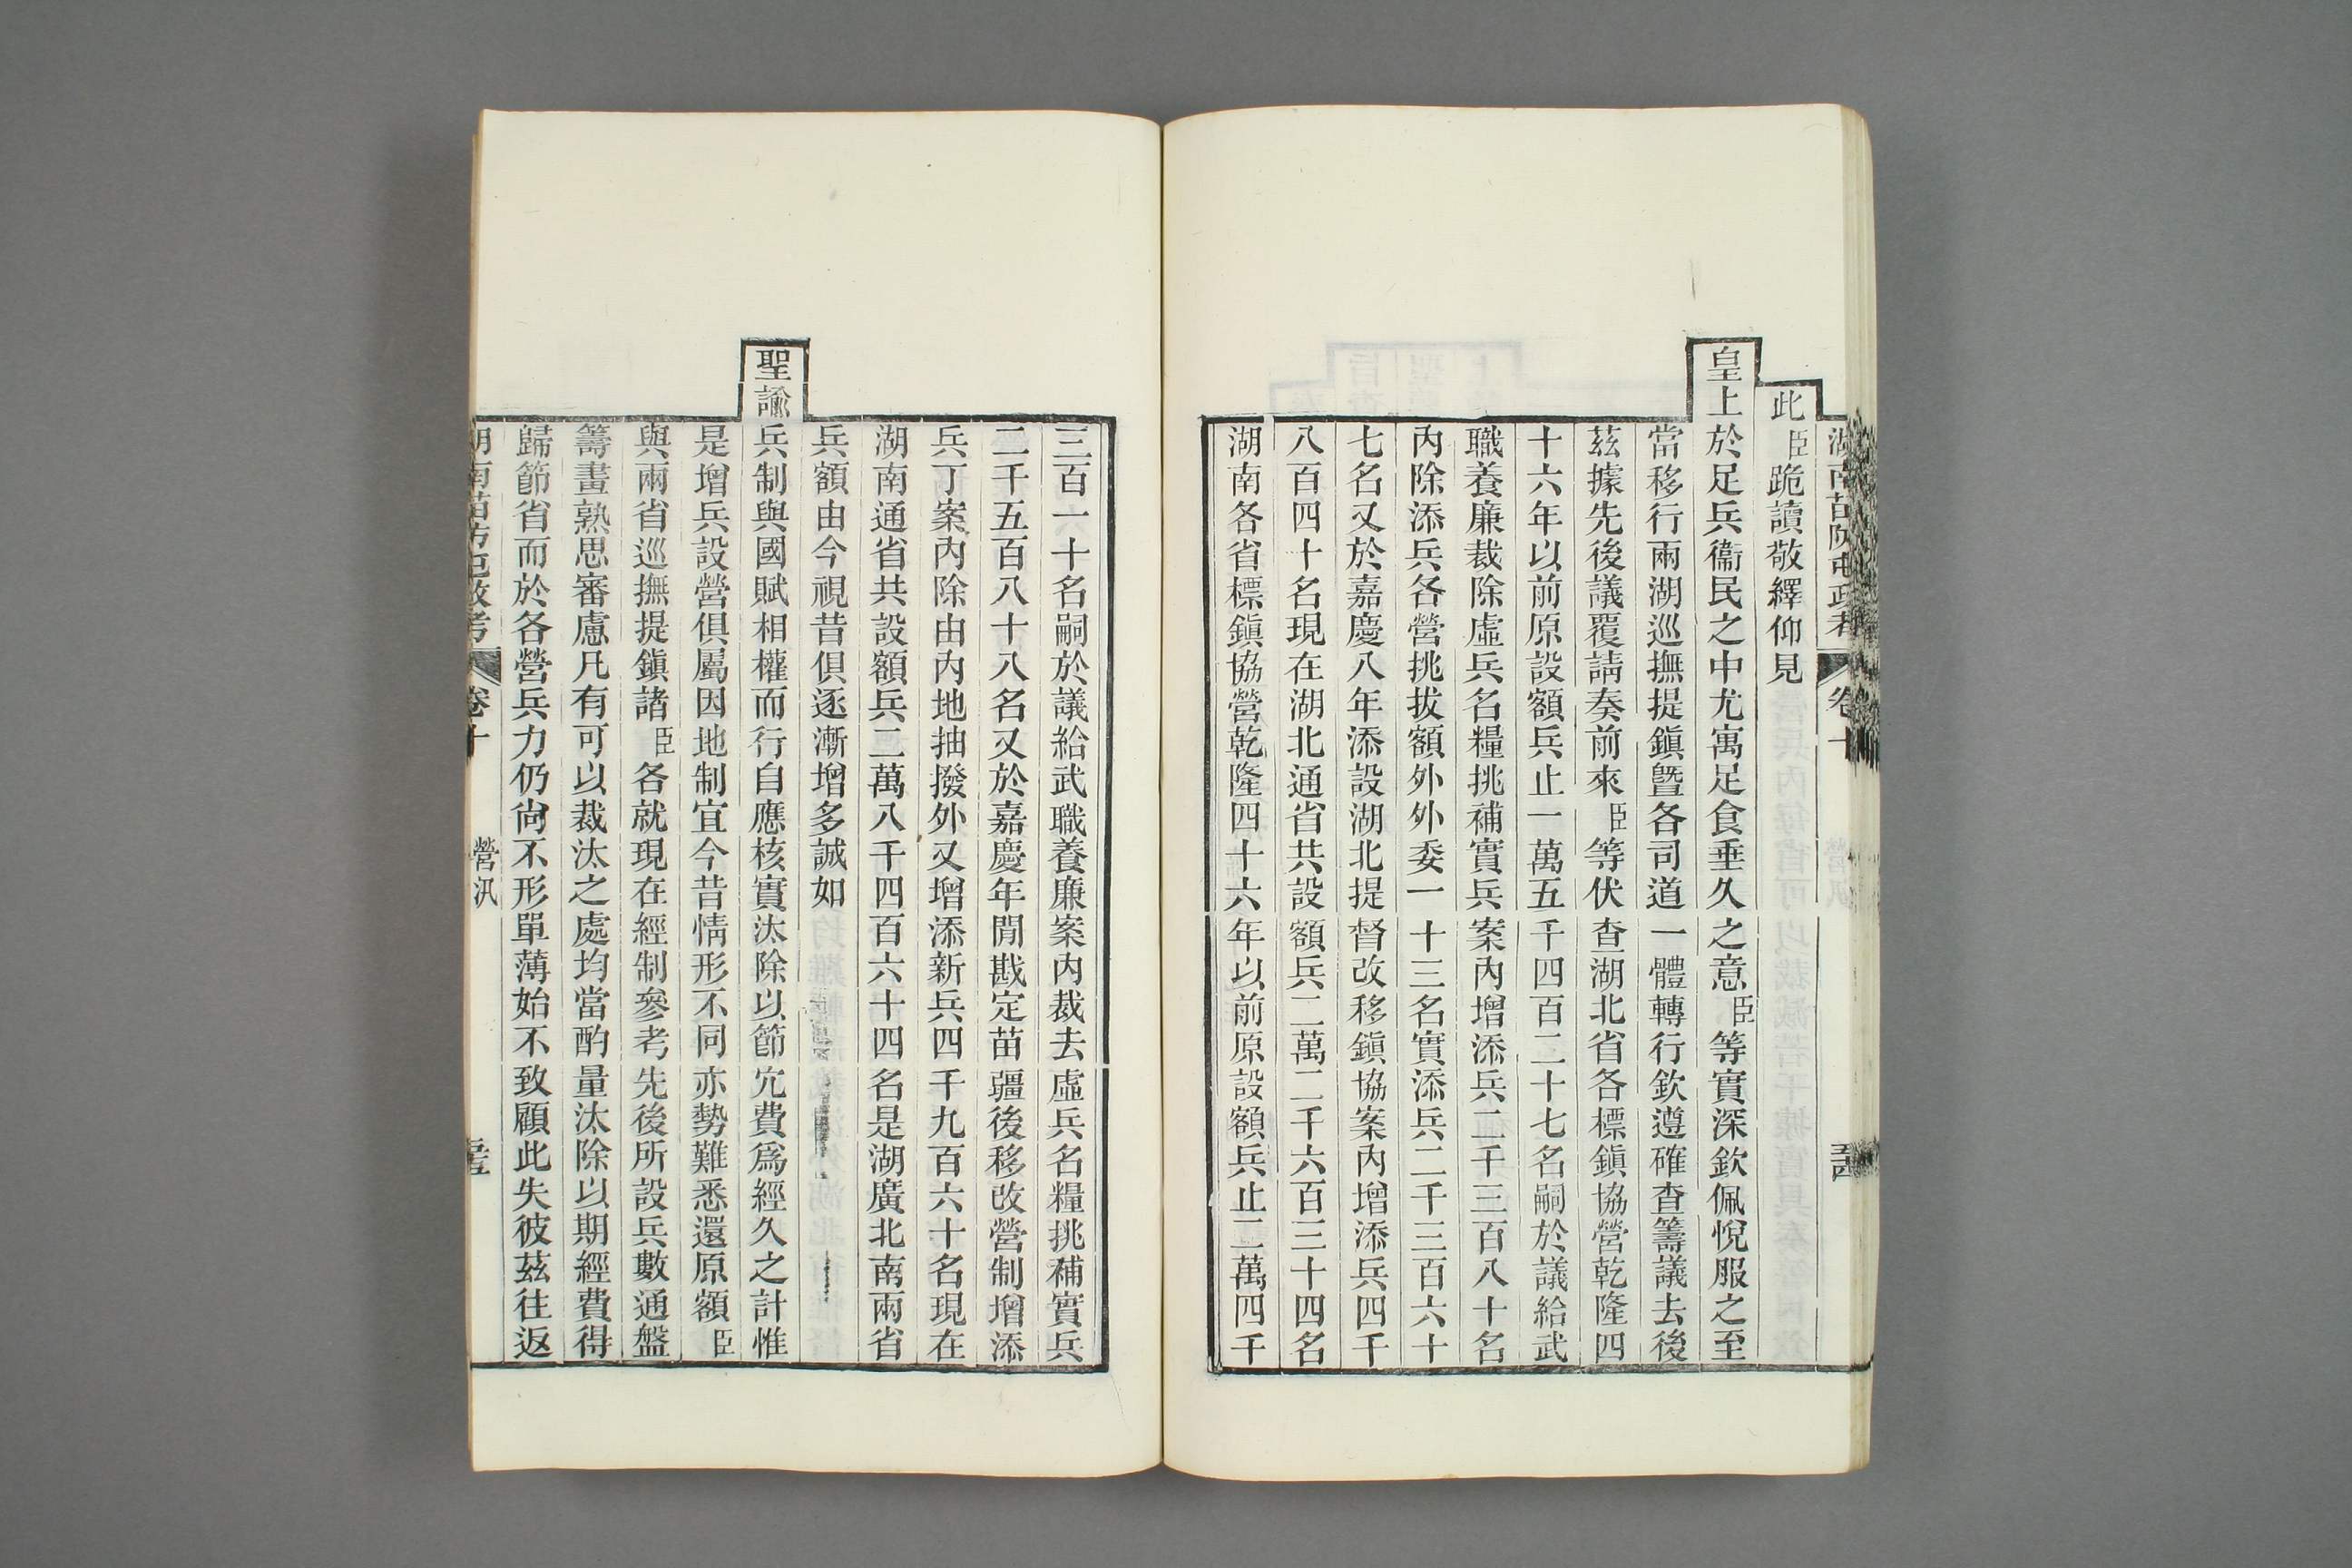 湖南苗防屯政考 卷十
此臣跪讀敬繹仰見
皇上於足兵衞民之中尤寓足食垂久之意臣等實深欽佩悅服之至
當移行兩湖巡撫提鎭曁各司道一體轉行欽遵確查籌議去後
茲據先後議覆請奏前來臣等伏查湖北省各標鎭協營乾隆四
十六年以前原設額兵止一萬五千四百二十七名嗣於議給武
職養廉裁除虛兵名糧挑補實兵案內增添兵二千三百八十名
內除添兵各營挑拔額外外委一十三名實添兵二千三百六十
七名又於嘉慶八年添設湖北提督改移鎭協案內增添兵四千
八百四十名現在湖北通省共設額兵二萬二千六百三十四名
湖南各省標鎭協營乾隆四十六年以前原設額兵止二萬四千
三百一十名嗣於議給武職養廉案內裁去虛兵名糧挑補實兵
二千五百八十八名又於嘉慶年閒戡定苗疆後移改營制增添
兵丁案內除由內地抽撥外又增添新兵四千九百六十名現在
湖南通省共設額兵二萬八千四百六十四名是湖廣北南兩省
兵額由今視昔俱逐漸增多誠如
聖諭兵制與國賦相權而行自應核實汰除以節宂費爲經久之計惟
是增兵設營俱屬因地制宜今昔情形不同亦勢難悉還原額臣
與兩省巡撫提鎭諸臣各就現在經制參考先後所設兵數通盤
籌畫熟思審慮凡有可以裁汰之處均當酌量汰除以期經費得
歸節省而於各營兵力仍尙不形單薄始不致顧此失彼茲往返
湖南苗防屯政考 卷十 營汛